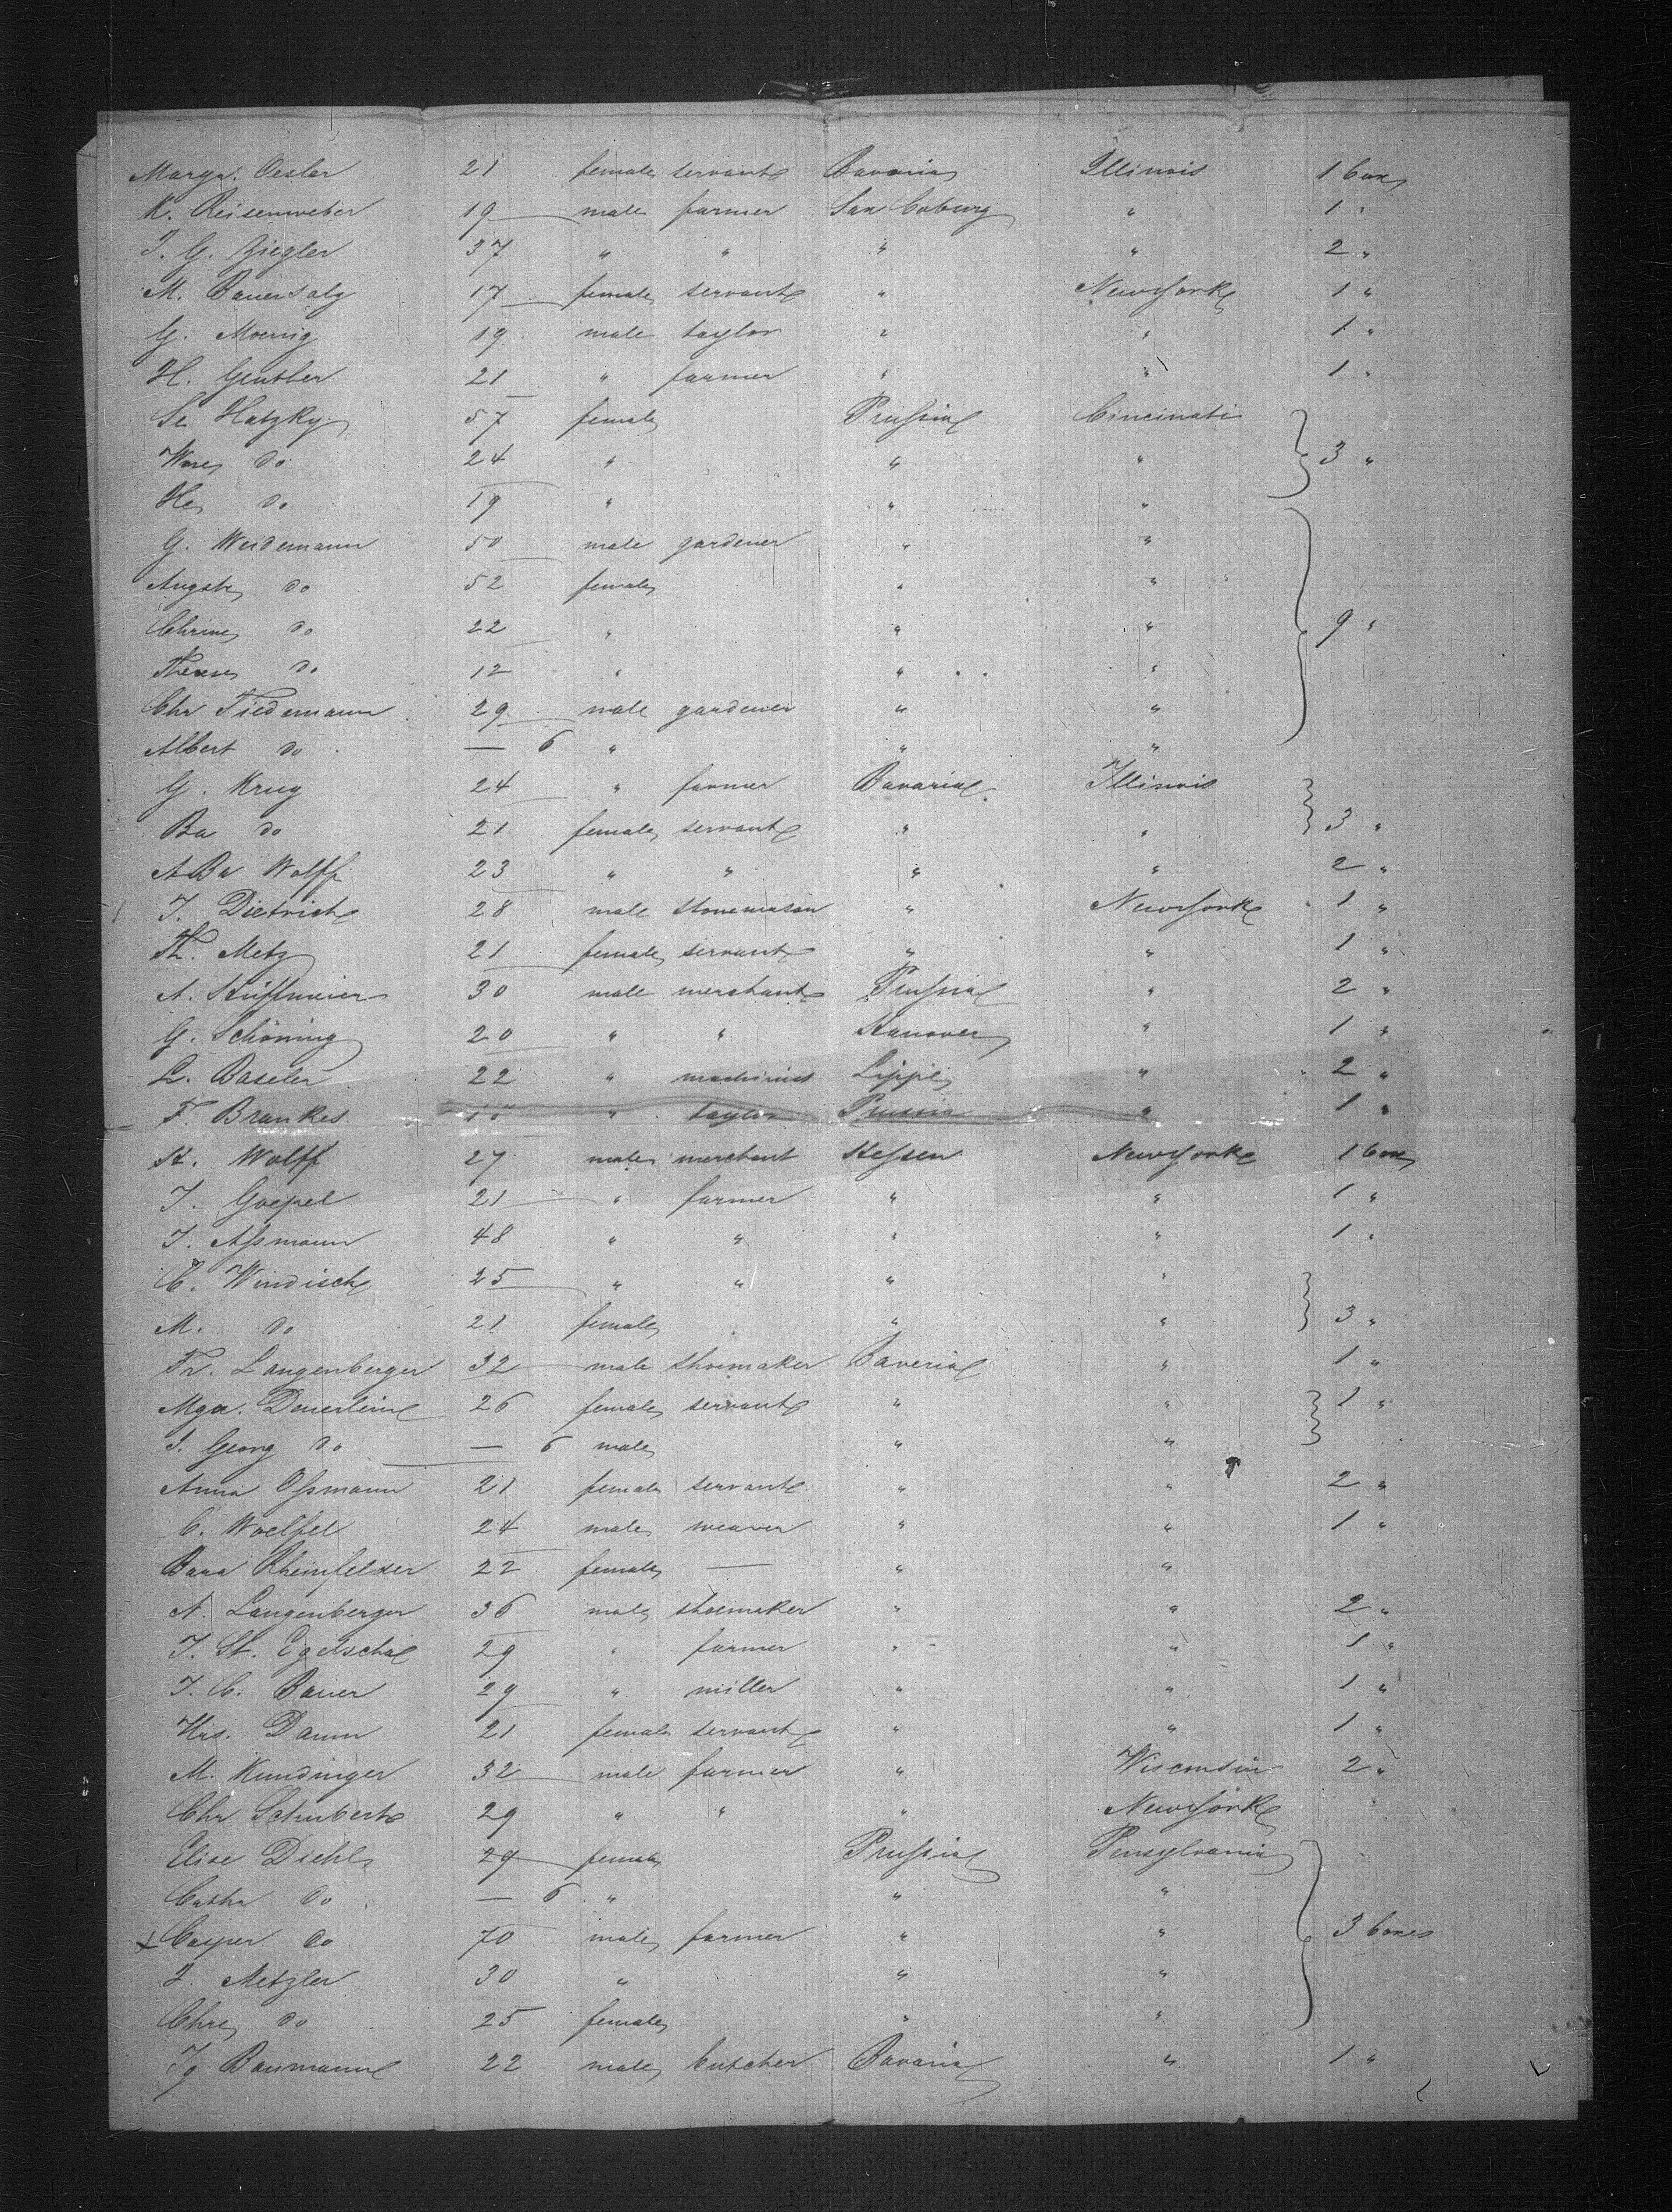 Margr. Oesler 21 female servant Bavaria Illinois 1 box
K. Reisenweber 19 male farmer Sax Coburg " 1 "
J. G. Ziegler 37 " " " " 2 "
M. Bauersalg 17 female servant " New York 1 "
G. Moenig 19 male taylor " " 1 "
H. Genther 21 " farmer " " 1 "
Se Hatzky 57 female Prussia Cincinati
do 24 " " " 3 "
He do 19 " " "
G. Weidemann 50 male gardener " "
Auguste do 52 female " "
Chrine do 22 " " " 9 "
Therese do 12 " " "
Chr Tiedemann 29 male gardener " "
Albert do — 6 " " "
G. Krug 24 " farmer Bavaria Illinois
Ba do 21 female servant " " 3 "
A Ba Wolff 23 " " " " 2 "
J. Dietrich 28 male stonemason " New York 1 "
Th. Metz 21 female servant " " 1 "
A. 30 male merchant Prussia " 2 "
G. Schöning 20 " " Hanover " 1 "
L. Baseler 22 " machinist Lippe " 2 "
F. Brankes " taylor Prussia " 1 "
H. Wolff 27 male merchant Hessen New York 1 box
J. Goepel 21 " farmer " " 1 "
J. Assmann 48 " " " " 1 "
C. Windisch 25 " " " "
M. do 21 female " " 3 "
Fr. Langenberger 32 male shoemaker Baveria " 1 "
Mga. Deuerlein 26 female servant " " 1 "
J. Georg do — 6 male " "
Anna Ossmann 21 female servant " " 2 "
C. Woelfel 24 male weaver " " 1 "
Bara Rheinfelder 22 female — " "
N. Langenberger 36 male shoemaker " " 2 "
J. St. Egelscha 29 " farmer " " 1 "
J. C. Bauer 29 " miller " " 1 "
Daum 21 female servant " " 1 "
M. Kundinger 32 male farmer " Wisconsin 2 "
Chr Schubert 29 " " " New York "
Elise Diehl 29 female Prussia Pensylvania
Cathr do — 6 " " "
x Casper do 70 male farmer " " 3 boxes
J. Metzler 30 " " "
Chre do 25 female " "
Jg Baumann 22 male butcher Bavaria " 1 "